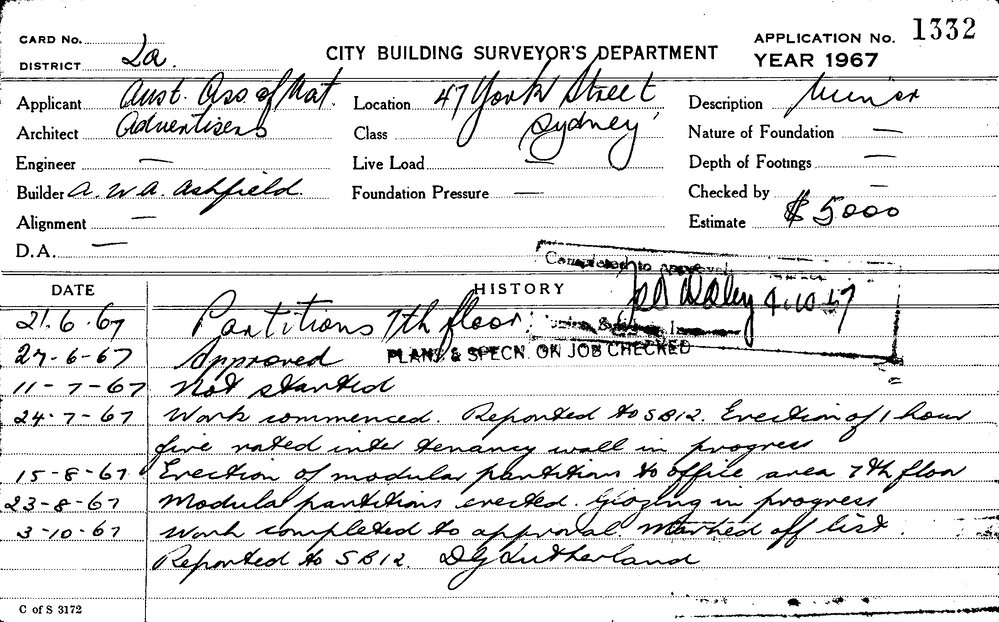 CARD No.
DISTRICT 2a.
CITY BUILDING SURVEYOR'S DEPARTMENT
APPLICATION No. 1332
YEAR 1967
Applicant Aust. Ass. of Nat.
Location 47 York Street
Description Minor
Architect Advertisers
Class Sydney
Nature of Foundation —
Engineer —
Live Load —
Depth of Footings —
Builder A. W. A. Ashfield.
Foundation Pressure —
Checked by —
Alignment —
Estimate $ 5000
D.A. —
Completed to approval
DATE
HISTORY
4.10.67
21.6.67 Partitions 7th floor.
27-6-67 Approved
PLANS & SPECN. ON JOB CHECKED
11-7-67 Not started
24-7-67 Work commenced. Reported to SB12. Erection of 1 hour
fire rated inter tenancy wall in progress
15-8-67 Erection of modular partitions to office area 7th floor
23-8-67 Modular partitions erected. Glazing in progress
3-10-67 Work completed to approval. Marked off list.
Reported to SB12. DG Sutherland
C of S 3172